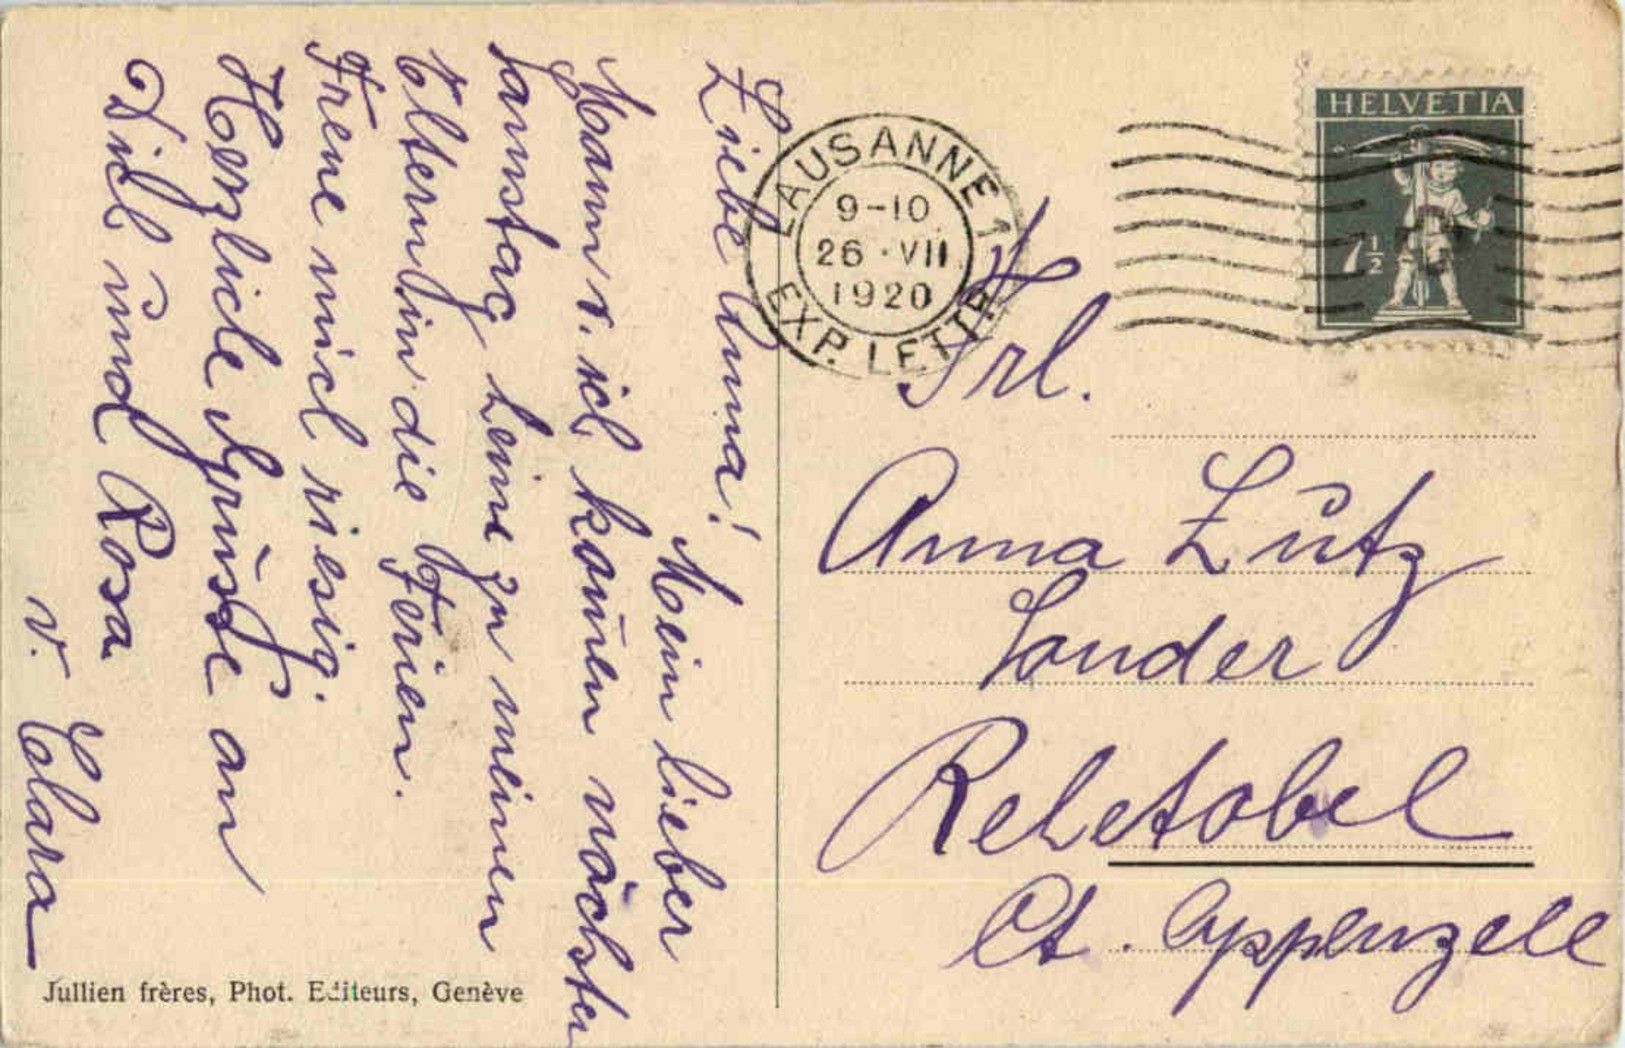 Liebe Anna!
Mein lieber
Mann u. ich kommen nächsten
Samstag heim zu meinen
Eltern in die Ferien.
Freue mich riesig.
Herzliche Grüsse an
Dich und Rosa
v. Clara
Jullien frères, Phot. Editeurs, Genève
LAUSANNE 1
9-10
26·VII
1920
EXP. LETTR.
HELVETIA
7½
Frl.
Anna Lutz
Sonder
Rehetobel
Ct. Appenzell